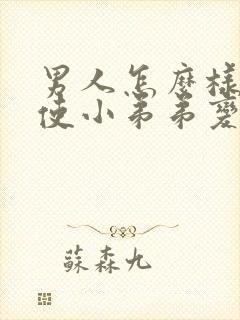 男人怎麼樣
使小弟弟變
蘇森九